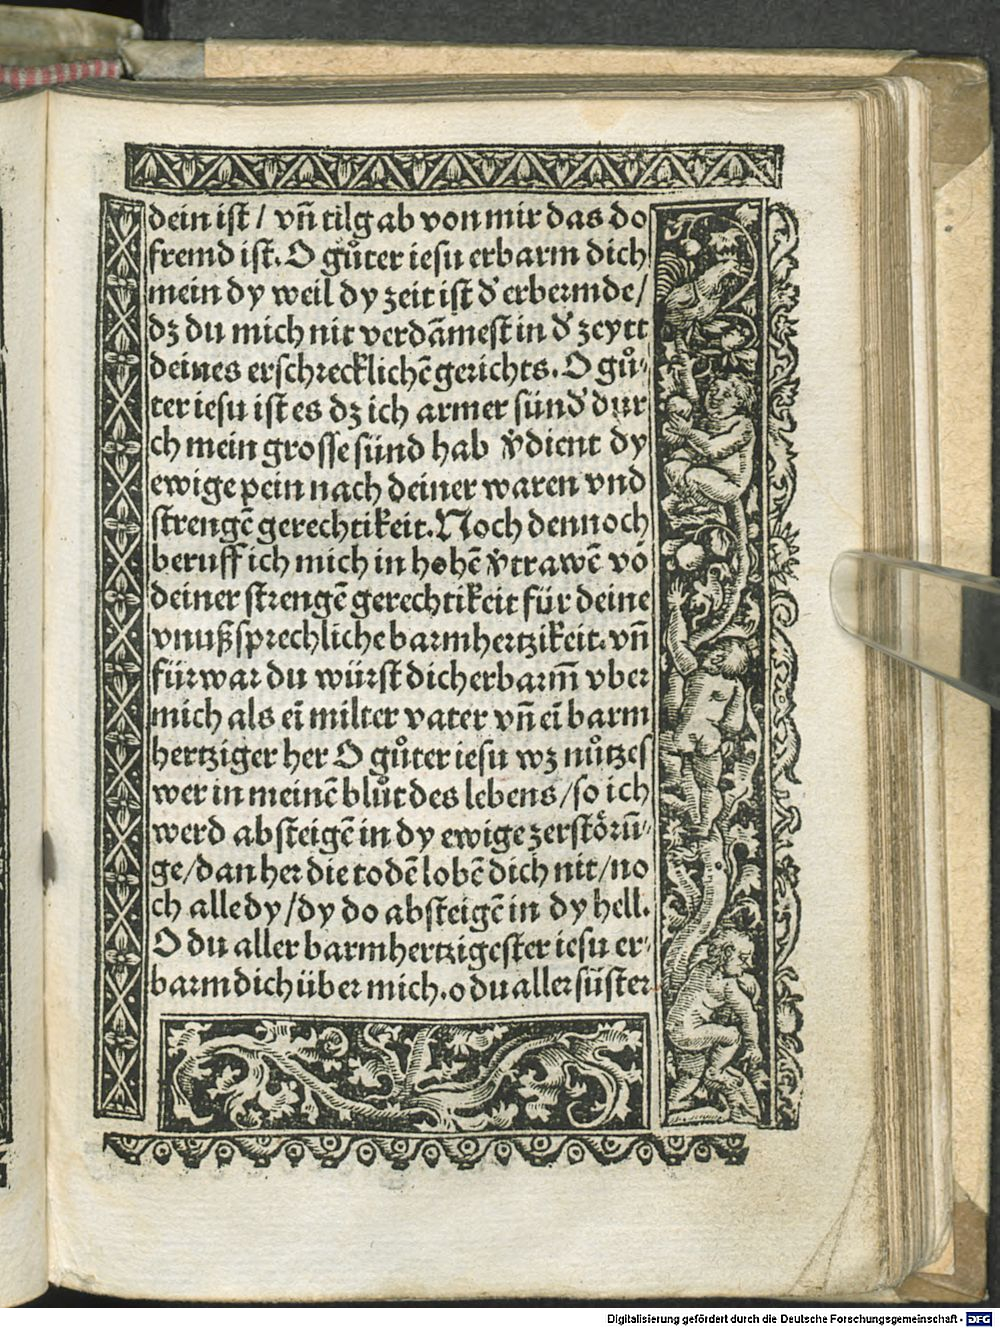 dein ist / vñ tilg ab von mir das do
fremd ist. O gůter iesu erbarm dich
mein dy weil dy zeit ist d' erbermde /
dz du mich nit verdāmest in d' zeytt
deines erschrecklichē gerichts. O gů⸗
ter iesu ist es dz ich armer sünd' dur
ch mein grosse sünd hab v̄dient dy
ewige pein nach deiner waren vnd
strengē gerechtikeit. Noch dennoch
beruff ich mich in hohē v̄trawē vō
deiner strengē gerechtikeit für deine
vnußsprechliche barmhertzikeit. vñ
fürwar du würst dich erbarm̄ vber
mich als eī milter vater vñ eī barm
hertziger her O gůter iesu wz nůtzes
wer in meinē blůt des lebens / so ich
werd absteigē in dy ewige zerstörū⸗
ge / dan her die todē lobē dich nit / no
ch alle dy / dy do absteigē in dy hell.
O du aller barmhertzigester iesu er⸗
barm dich über mich. o du aller süster
Digitalisierung gefördert durch die Deutsche Forschungsgemeinschaft - DFG